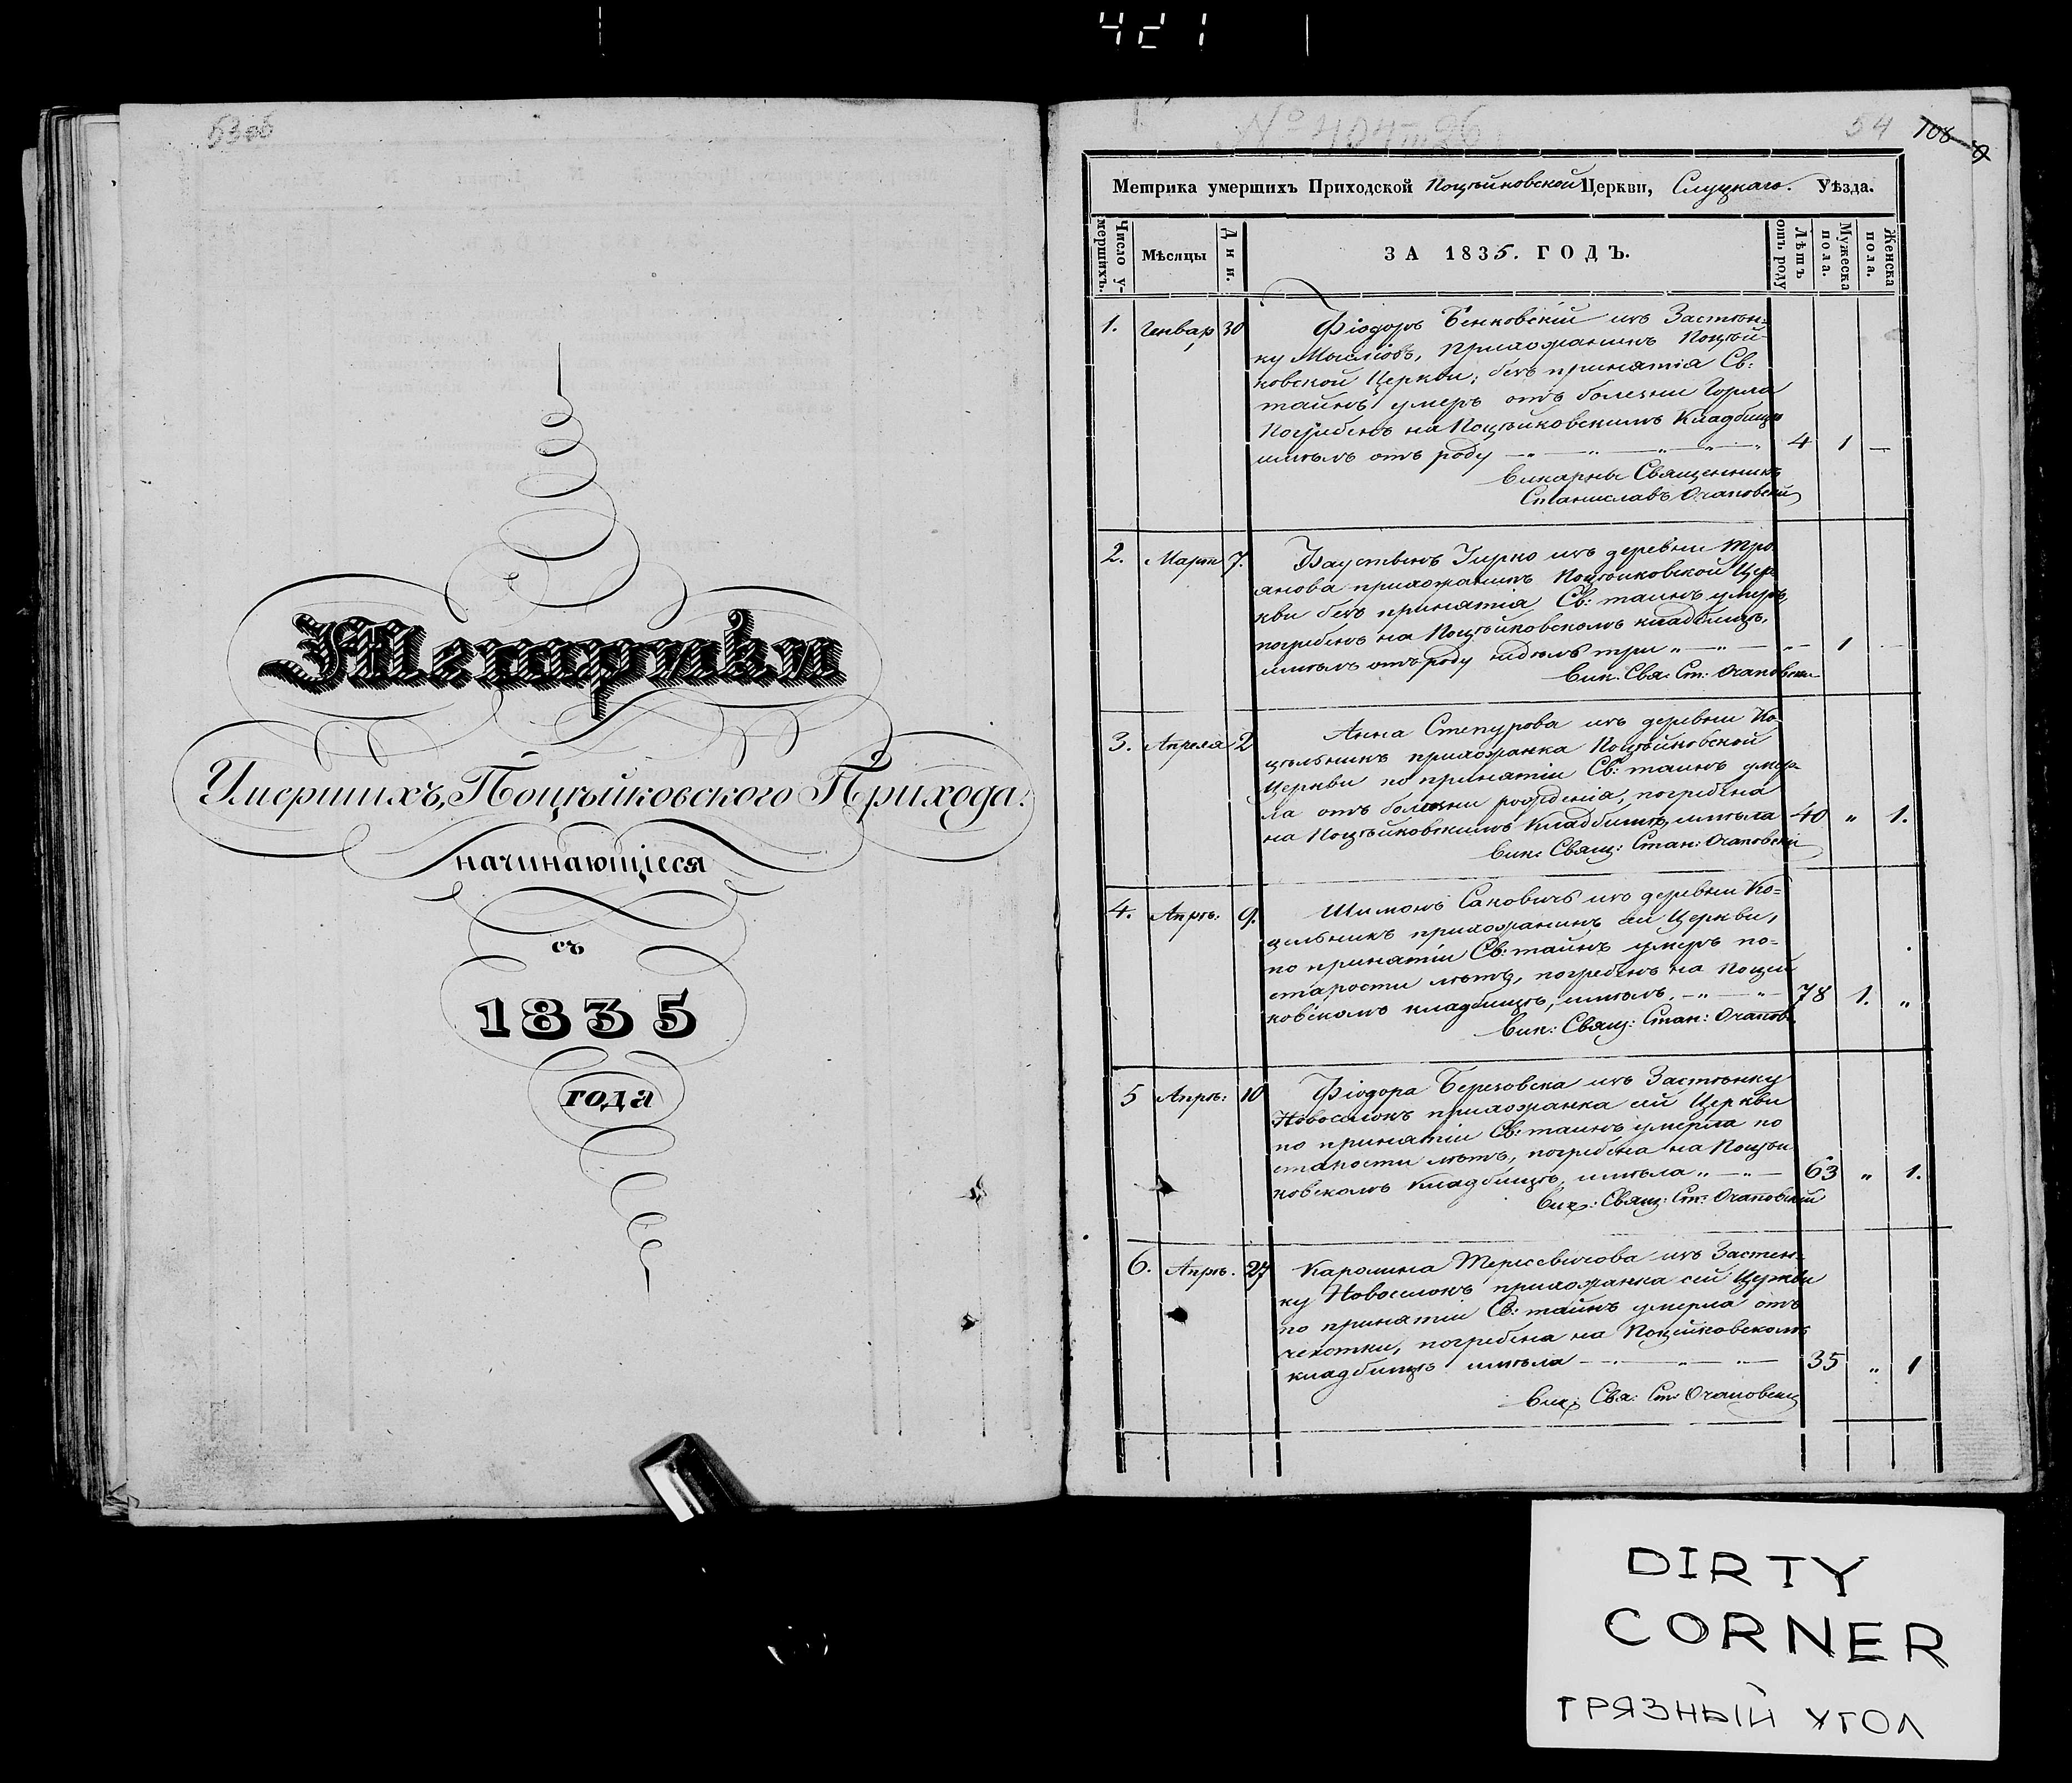 421
53об
Метрики
Умершихъ, Поцѣйковского Прихода.
начинающіеся
съ
1835
года
54 108
Метрика умершихъ Приходской Поцѣйковской Церкви, Слуцкаго. Уѣзда.
Число умершихъ. Мѣсяцы Дни. ЗА 1835. ГОДЪ. Лѣтъ отъ роду Мужеска пола. Женска пола.
1. Генвар 30 Ѳіодоръ Бенковскій изъ Застѣн-
ку прихожанинъ Поцѣй-
ковской Церкви; безъ принятія Св:
таинъ умеръ отъ болезни Горла
Погребенъ на Поцѣйковскимъ Кладбищѣ
имѣлъ отъ роду 4 1 —
Викарны Священникъ
Станиславъ Очаповскій
2. Март 7. изъ деревни Тро
янова прихожанинъ Поцѣйковской Цер
кви безъ принятія Св: таинъ умеръ,
погребенъ на Поцѣйковскомъ кладбищѣ,
имѣлъ отъ роду недѣль три „ — „ — „ — 1
Вик. Свя: Ст: Очаповски
3. Апреля 2 Анна Степурова изъ деревни Ко
цѣльникъ прихожанка Поцѣйковской
Церкви по принятіи Св: таинъ умер
ла отъ болезни рожденія, погребена
на Поцѣйковскимъ Кладбищѣ, имѣла 40 „ 1.
Вик: Свящ: Стан: Очаповскі
4. Апрѣ: 9. Шимонъ Саковичъ изъ деревни Ко=
цельникъ прихожанинъ сей Церкви,
по принятіи Св: таинъ умеръ по=
старости лѣтъ, погребенъ на Поцей
ковскомъ кладбищѣ, имѣлъ. — „ — „ — 78 1. „
Вик: Свящ: Стан: Очапов
5 Апрѣ: 10 Ѳіодора Березовска изъ Застѣнку
Новоселокъ прихожанка сей Церкви
по принятіи Св: таинъ умерла по
старости лѣтъ, погребена на Поцѣй
ковскомъ Кладбищѣ, имѣла „ — „ — 63 „ 1.
Вик: Свящ: Ст: Очаповскій
6. Апрѣ. 27 Каролина изъ Застен-
ку Новоселокъ прихожанка сей Церкви
по принятіи Св: таинъ умерла отъ
чехотки, погребена на Поцейковскомъ
кладбищѣ имѣла — „ — „ — 35 „ 1
Вик: Свя: Ст: Очаповскі
DIRTY
CORNER
ГРЯЗНЫЙ УГОЛ